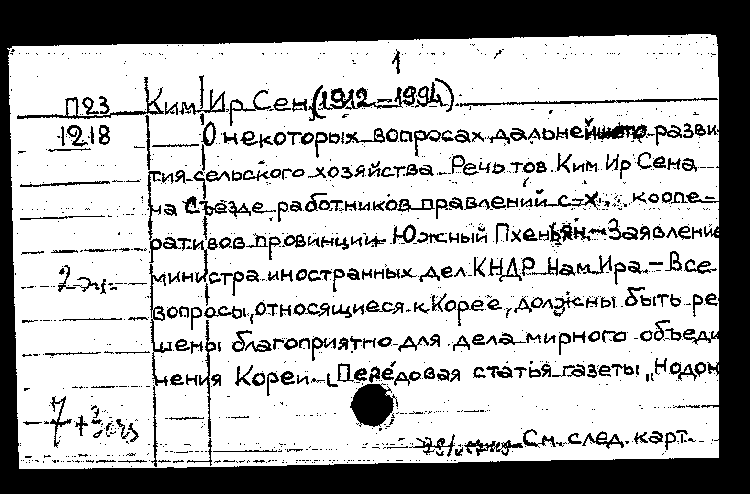 1
П23 Ким Ир Сен (1912-1994)
1218 О некоторых вопросах дальнейшего разви
тия сельского хозяйства. Речь тов. Ким Ир Сена
на съезде работников правлений с-х. коопе-
ративов провинции Южный Пхеньян.-Заявление
2 экз. министра иностранных дел КНДР Нам Ира.-Все
вопросы, относящиеся к Корее, должны быть ре
шены благоприятно для дела мирного объеди
нения Кореи. (Передовая статья газеты "Нодон
7 + 3
См. след. карт.